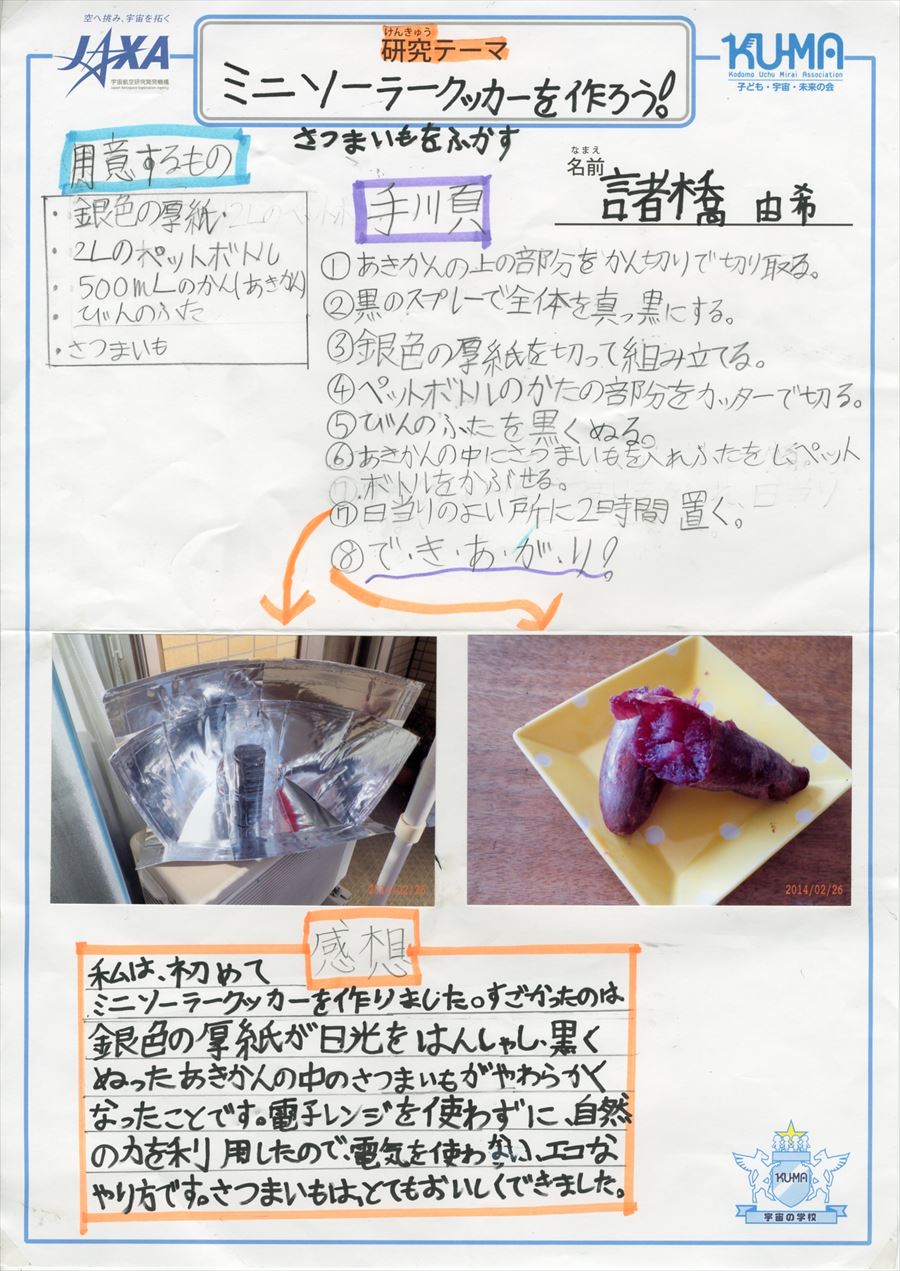 空へ挑み、宇宙を拓く
JAXA
宇宙航空研究開発機構
Japan Aerospace Exploration Agency
けんきゅう
研究テーマ
ミニソーラークッカーを作ろう!
さつまいもをふかす
KU-MA
Kodomo Uchu Mirai Association
子ども・宇宙・未来の会
なまえ
名前 諸橋 由希
用意するもの
・銀色の厚紙
・2Lのペットボトル
・500mLのかん(あきかん)
・びんのふた
・さつまいも
手川頁
①あきかんの上の部分をかん切りで切り取る。
②黒のスプレーで全体を真っ黒にする。
③銀色の厚紙を切って組み立てる。
④ペットボトルのかたの部分をカッターで切る。
⑤びんのふたを黒くぬる。
⑥あきかんの中にさつまいもを入れふたをし、ペット
ボトルをかぶせる。
⑦日当りのよい所に2時間置く。
⑧で・き・あ・が・り!
2014/02/26
2014/02/26
感想
私は、初めて
ミニソーラークッカーを作りました。すごかったのは
銀色の厚紙が日光をはんしゃし、黒く
ぬったあきかんの中のさつまいもがやわらかく
なったことです。電子レンジを使わずに、自然
の力を利用したので、電気を使わない、エコな
やり方です。さつまいもは、とてもおいしくできました。
KU-MA
宇宙の学校